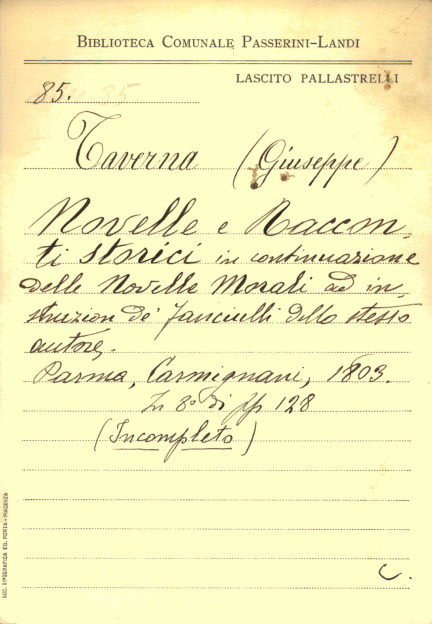 BIBLIOTECA COMUNALE PASSERINI-LANDI
LASCITO PALLASTRELLI
85. 85
Taverna (Giuseppe)
Novelle e Raccon-
ti storici in continuazione
delle Novelle Morali ad in-
struzion de' fanciulli dello stesso
autore,.
Parma, Carmignani, 1803.
In 8º di pp 128
(Incompleto)
C.
LUC. TIPOGRAFICA ED. PORTA - PIACENZA